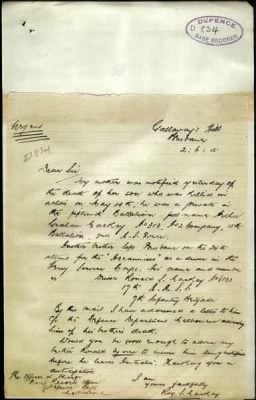 DEFENCE
D 834
BASE RECORDS
Urgent
D834
Galloway's Hill
Brisbane
2. 6. 15
Dear Sir
My mother was notified yesterday of
the death of her son who was killed in
action on May 9th, he was a private in
the fifteenth Battalion, full name Archer
Graham Mackay No 303, No 2 Company, 15th
Battalion, A. I. Force
Another brother left Brisbane on the 24th
ultimo for the as a driver in the
Army Service Corps. his name and number
Driver Ronald S. Mackay
17th A.A.S.C.
7th Infantry Brigade
By the mail I have addressed a letter to him
of the Defence Department Melbourne advising
him of his brothers death.
Would you be good enough to advise my
brother Ronald by wire to reach him
before he leaves Australia. Thanking you in
anticipation
I am
yours faithfully
Roy S. Mackay
The officer in charge
Base Records Office
Melbourne